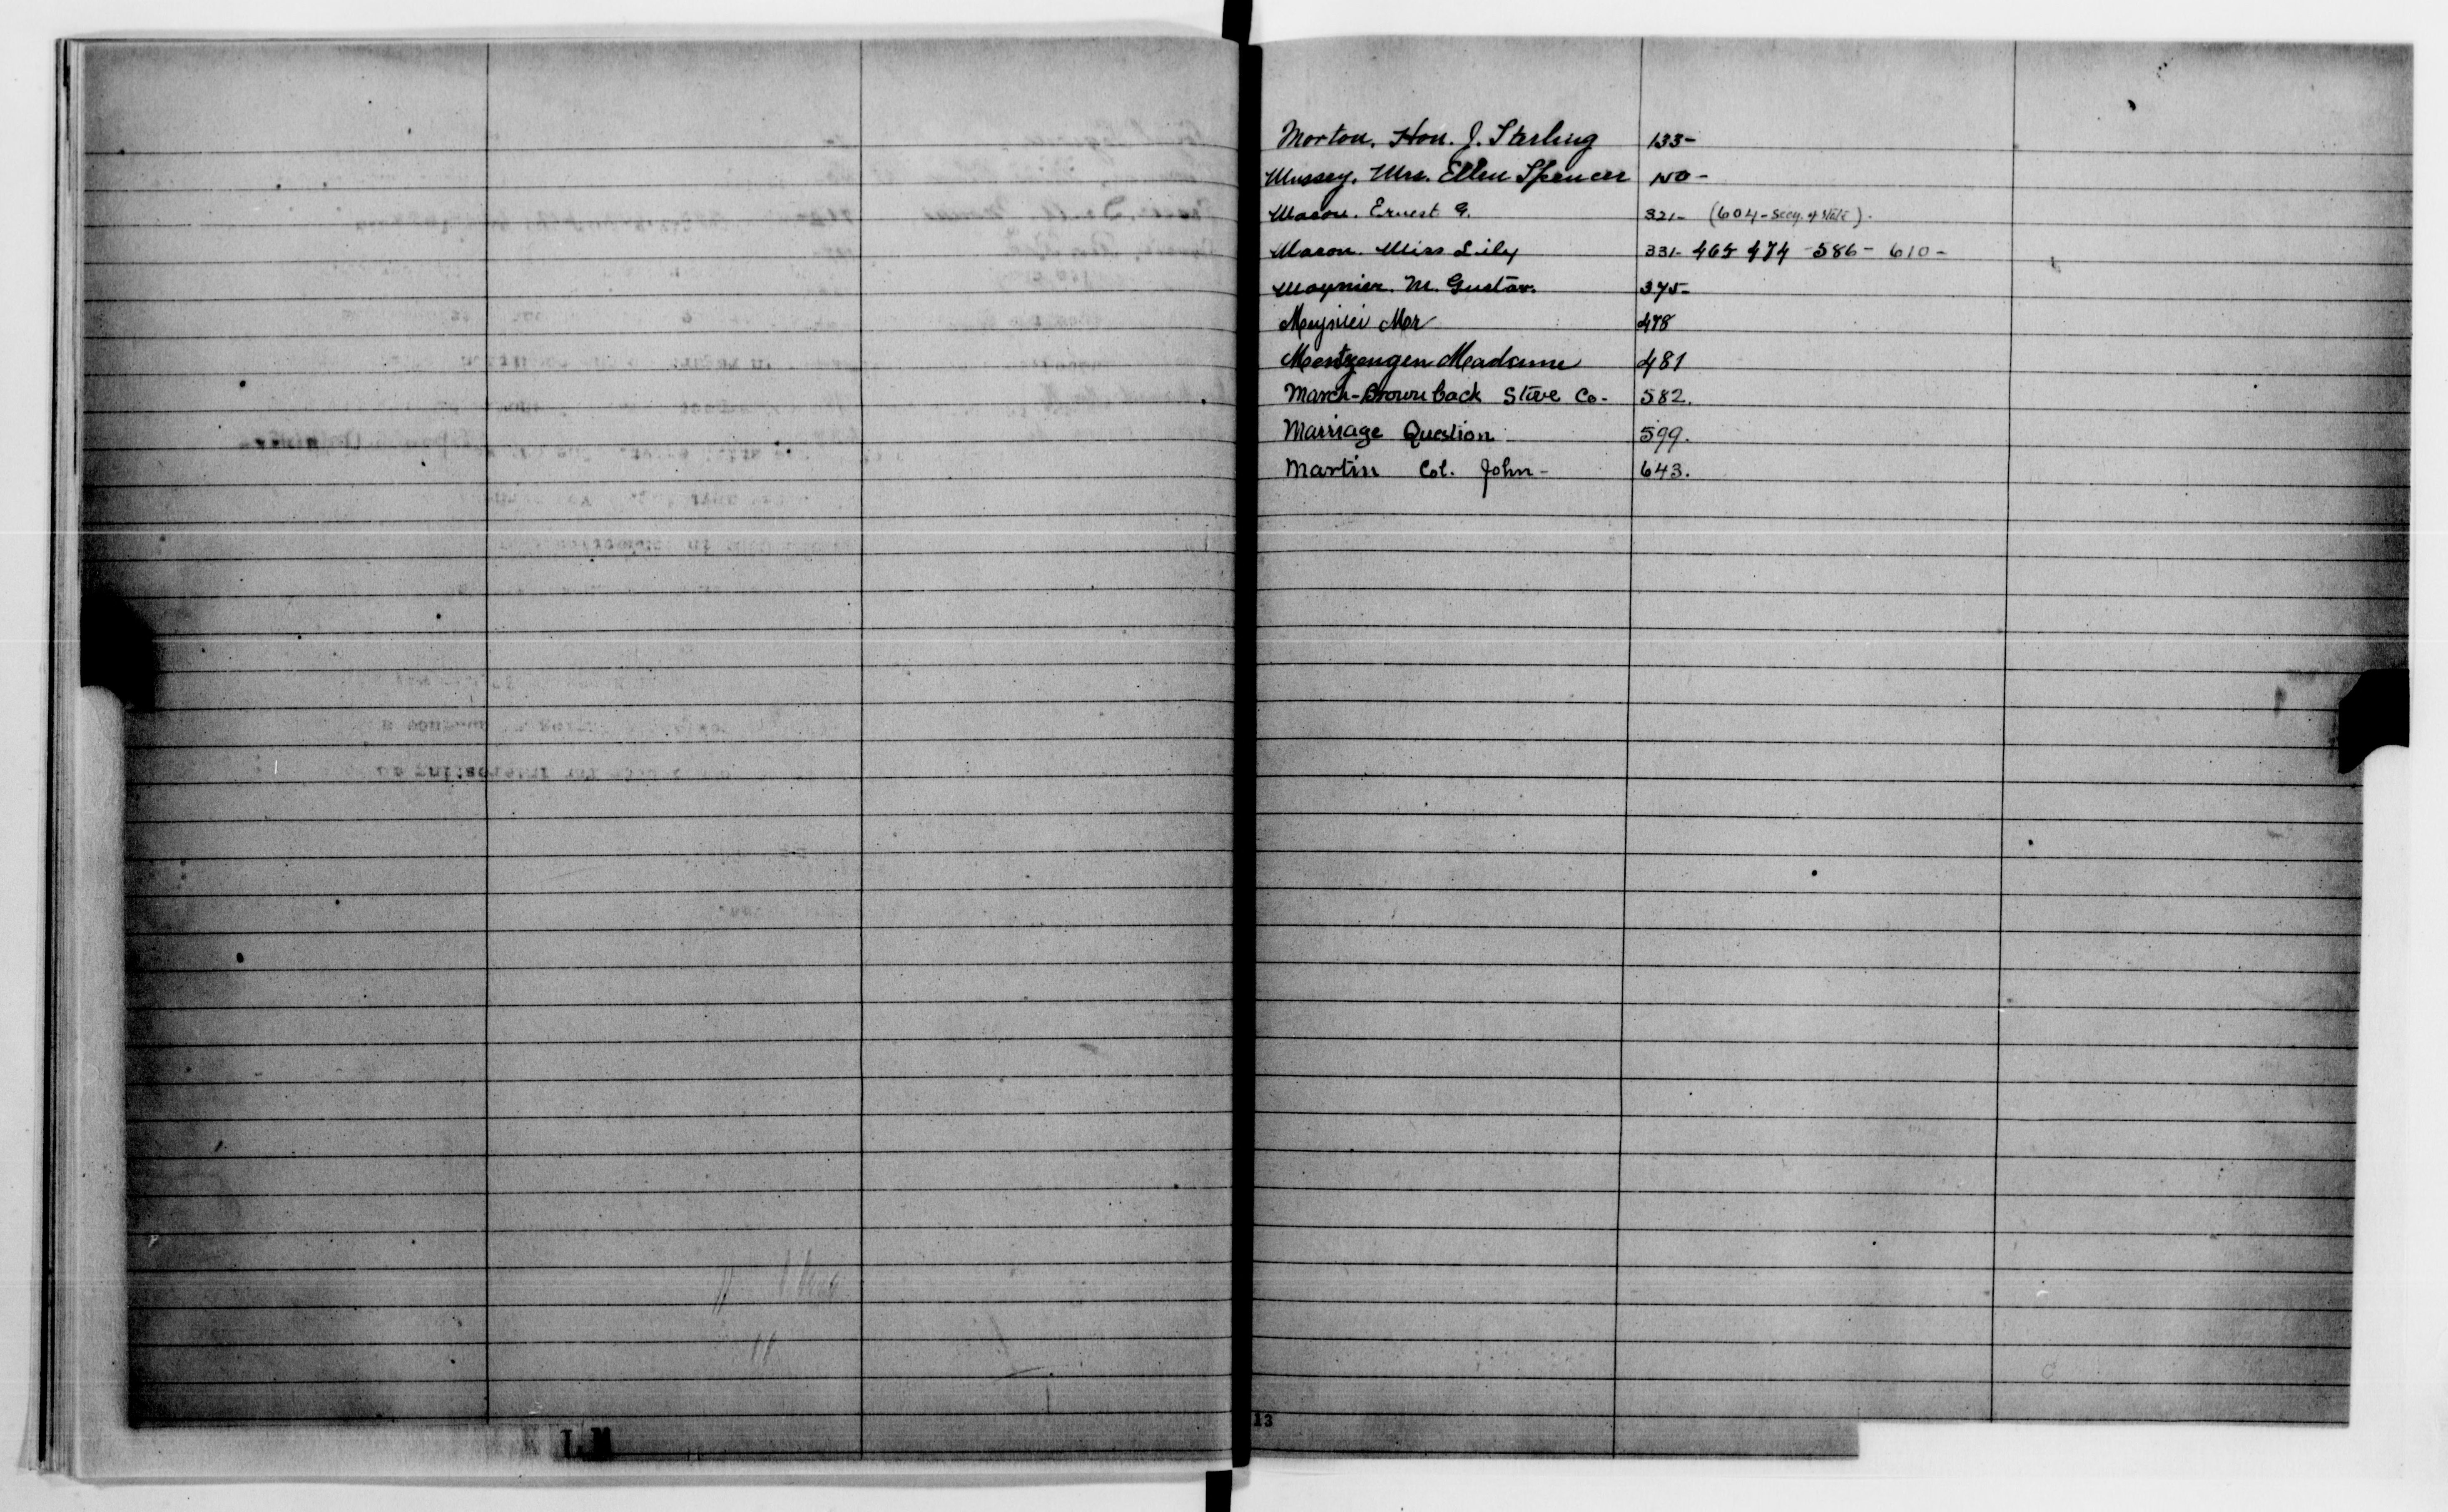 Morton, Hon. J. Sterling 133-
Mussey, Mrs. Ellen Spencer 150-
Mason. Ernest G. 321- (604-Secy. of State).
Mason. Miss Lily 331- 465 474 586- 610-
Moynier. M. Gustav. 375-
478
Mentzengen Madame 481
March-Brownback Stove Co. 582.
Marriage Question 599.
Martin Col. John- 643.
L M
13